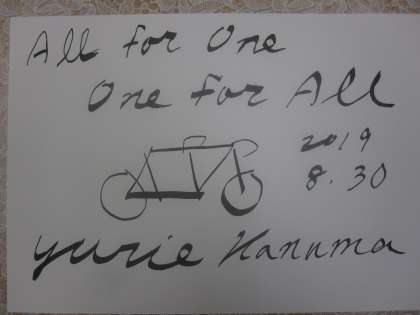 All for One
One for All
2019
8.30
yurie Hanuma